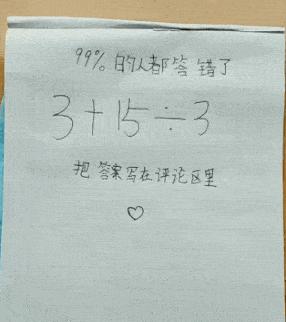 99% 的人都答错了
3+15÷3
把答案写在评论区里
♡